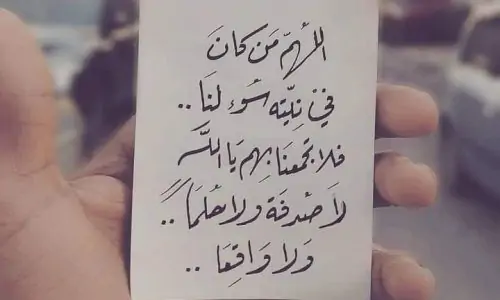 اللهمّ مَن كانَ
في نِيّته سُوء لنَا ..
فلا تجمعنَا بهِم يَا اللّه
لاَ صُدفَة ولا حُلمَاً ..
وَلا وَاقِعَا ..